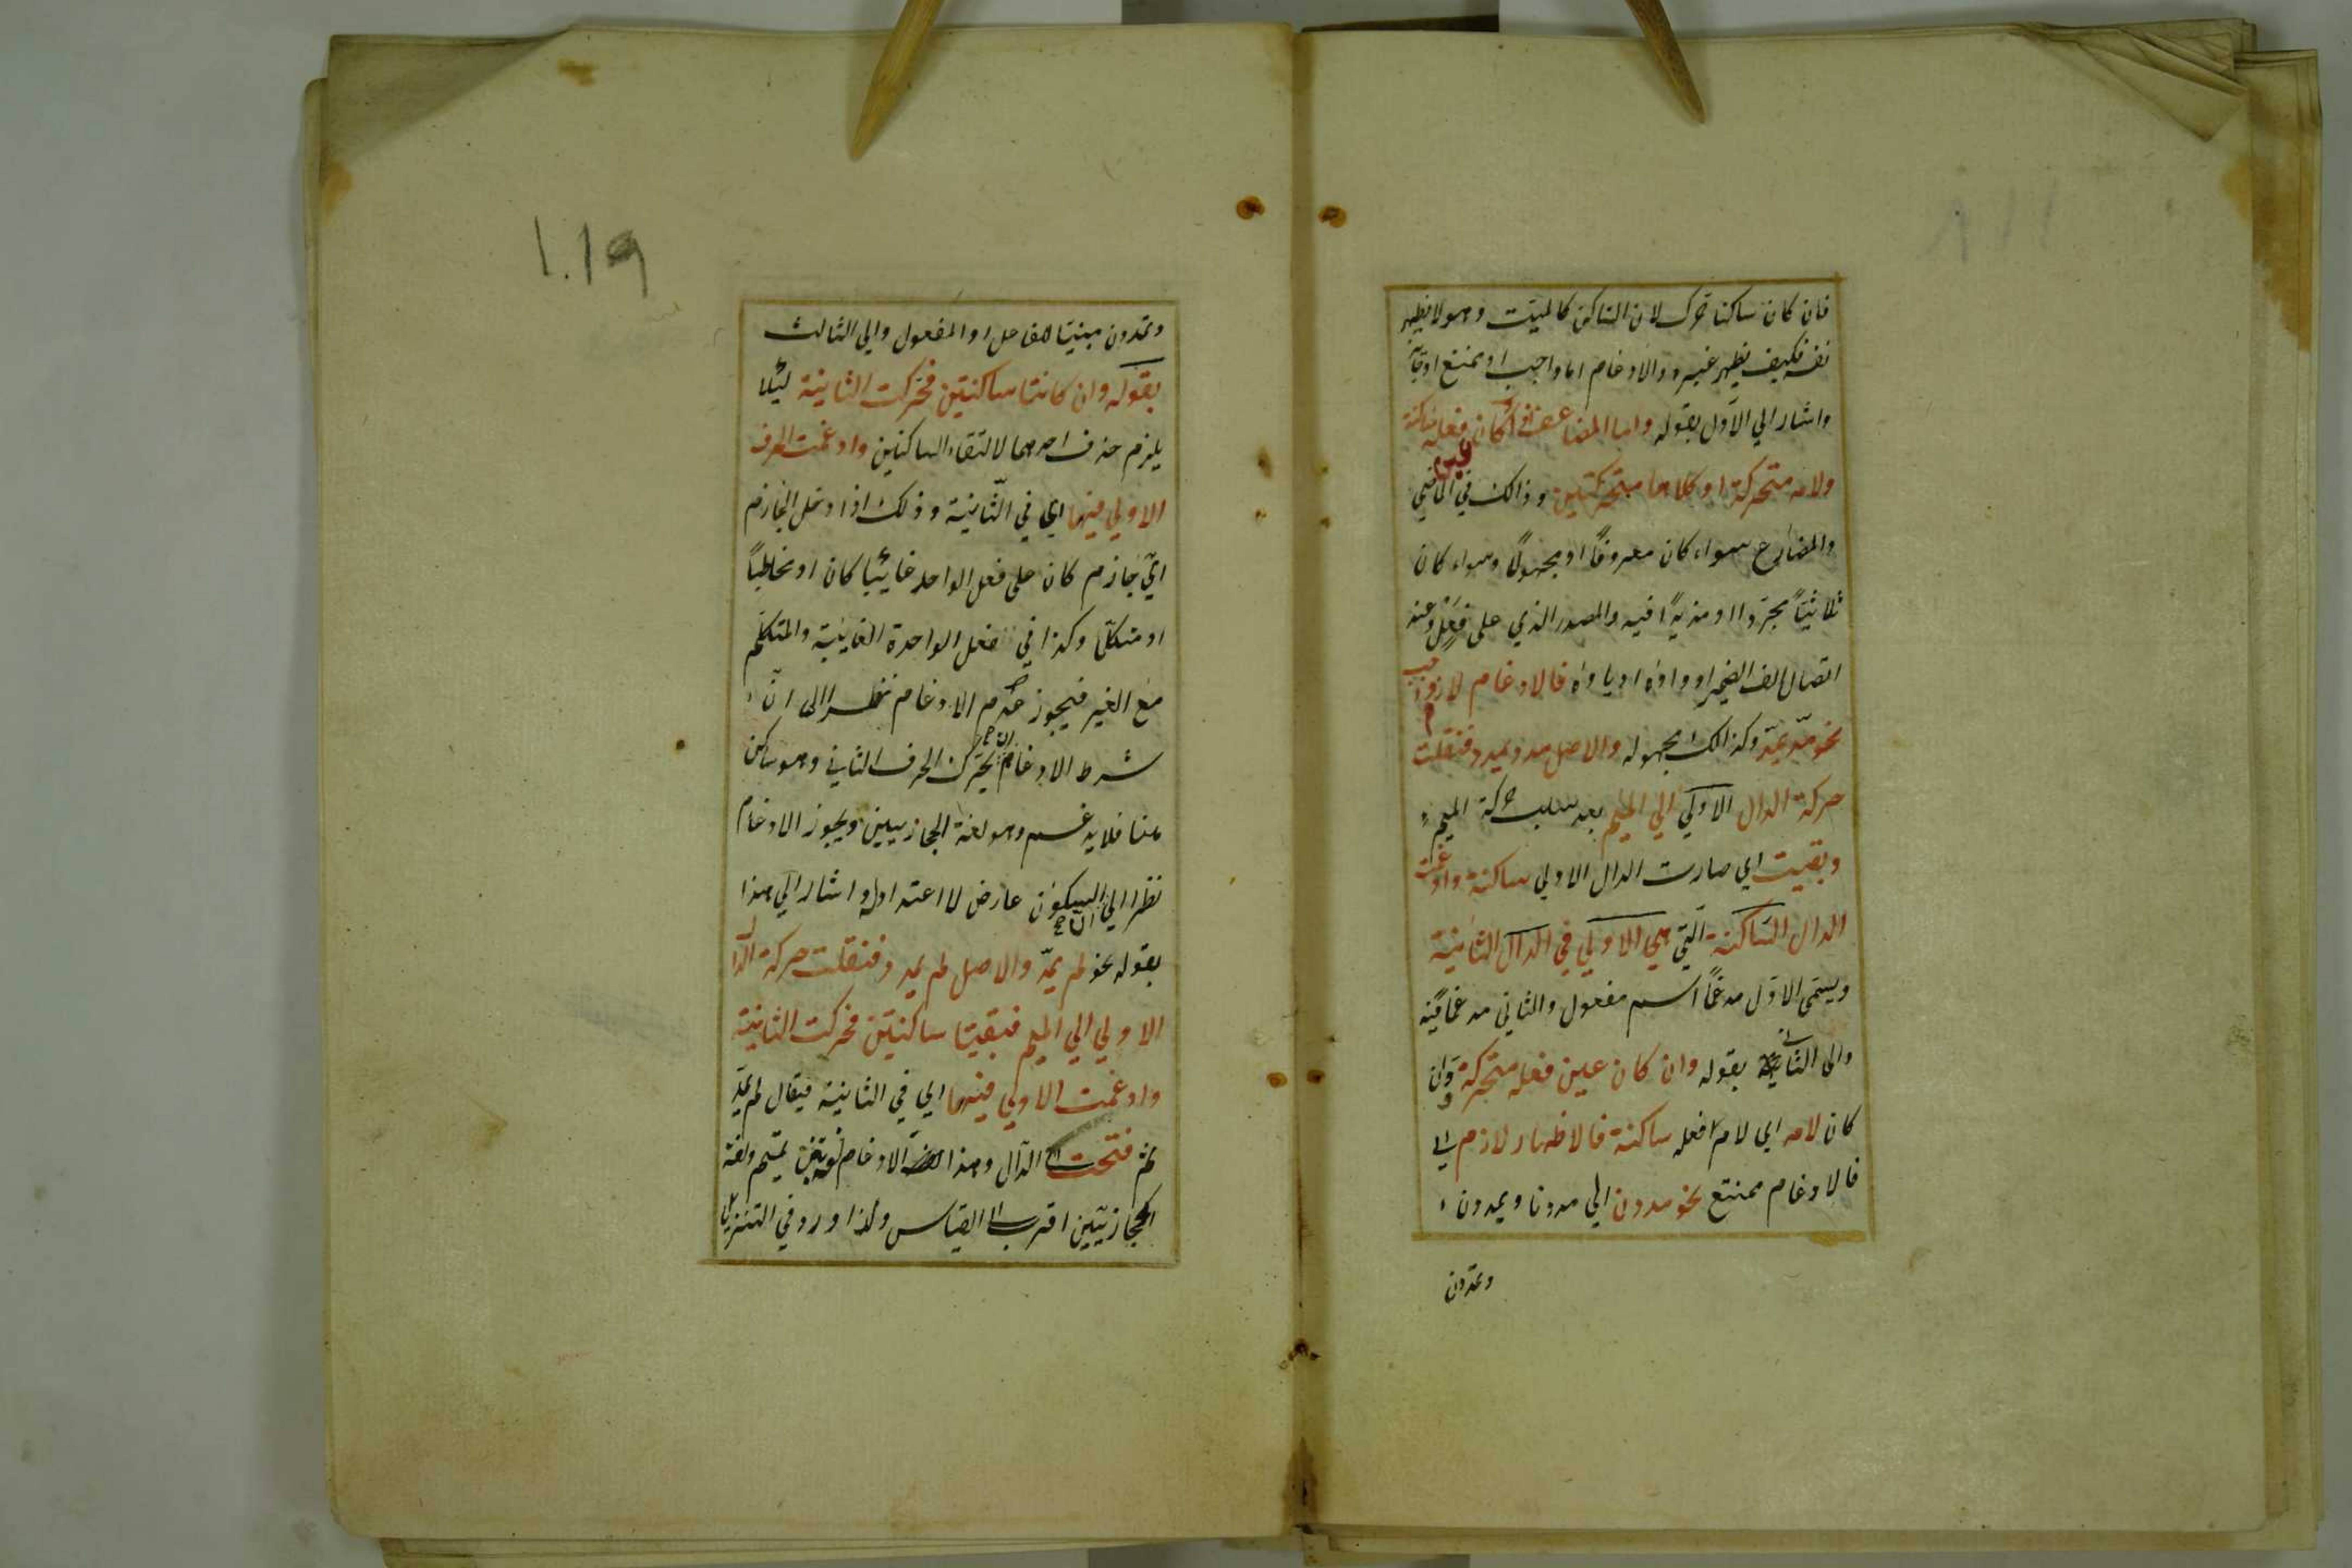 فان كان ساكنا حرك لان الساكن كالميت وهو لا يظهر
نفسه فكيف يظهر غيره والادغام اما واجب او ممتنع او جائز
واشار الي الاول بقوله واما المضاعف فان كان عين فعله ساكنة
ولامه متحركة او كلاهما متحركتين وذالك في الماضي
والمضارع سواء كان معروفًا او مجهولًا وسواء كان
ثلاثيًا مجردا او مزيدًا فيه والمصدر الذي على فعل وعند
اتصال الف الضمير او واوه او ياؤه فالادغام لازم واجب
نحو مدّ يمدّ وكذالك مجهوله والاصل مدد يمدد فنقلت
حركة الدال الاولي الي الميم بعد سلب حركة الميم
وبقيت اي صارت الدال الاولي ساكنة وادغمت
الدال الساكنة الّتي هي الاولي في الدال الثانية
ويسمّى الاوّل مدغمًا اسم مفعول والثاني مدغمًا فيه
والى الثاني بقوله وان كان عين فعله متحركة وان
كان لامه اي لام فعله ساكنة فالاظهار لازم اي
فالادغام ممتنع نحو مددن الي مددنا ويمددن
وتمددن
١٠١٩
وتمددن مبنيّا للفاعل او المفعول والي الثالث
بقوله وان كانتا ساكنتين فحرّكت الثانية لئلا
يلزم حذف احدهما لالتقاء الساكنين وادغمت الحرف
الاولي فيها اي في الثّانية وذلك اذا دخل الجازم
ايّ جازم كان على فعل الواحد غائبا كان او مخاطبًا
او متكلّما وكذا في فعل الواحدة الغايبة والمتكلم
مع الغير فيجوز عدم الادغام نظرا الى انّ
شرط الادغام تحرك الحرف الثاني وهو ساكن
هنا فلا يدغم وهو لغة الحجازيين ويجوز الادغام
نظرا الي ان السكون عارض لا اعتداد له واشار الي هذا
بقوله نحو لم يمدّ والاصل لم يمدد فنقلت حركة الدال
الاولي الي الميم فبقيتا ساكنتين فحركت الثانية
وادغمت الاولي فيها اي في الثانية فيقال لم يمدّ
ثم فتحت الدال وهذا الادغام لغة بني تميم ولغة
الحجازيّين اقرب الي القياس ولذا ورد في التنزيل